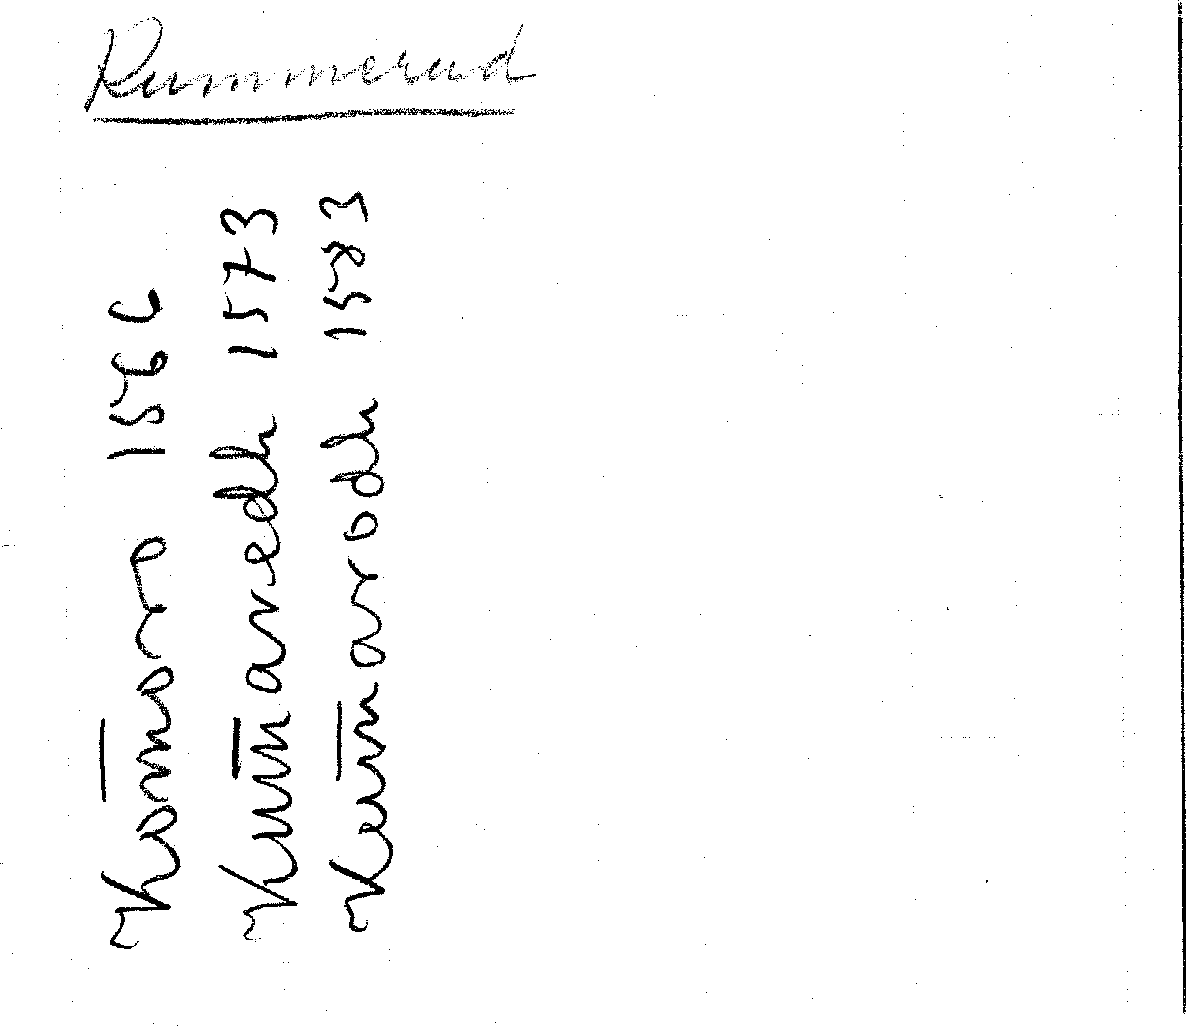 Rummerud
Rom̄ore 1566
Rum̄aredh 1573
Reum̄arodh 1583